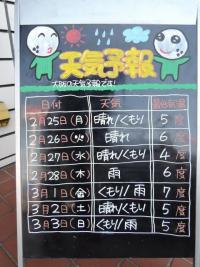 天気予報
大阪の天気予報です!
日付 天気 最高気温
2月25日(月) 晴れ/くもり 5度
2月26日(火) 晴れ 6度
2月27日(水) 晴れ/くもり 4度
2月28日(木) 雨 6度
3月1日(金) くもり/雨 7度
3月2日(土) 晴れ/くもり 5度
3月3日(日) くもり/雨 5度